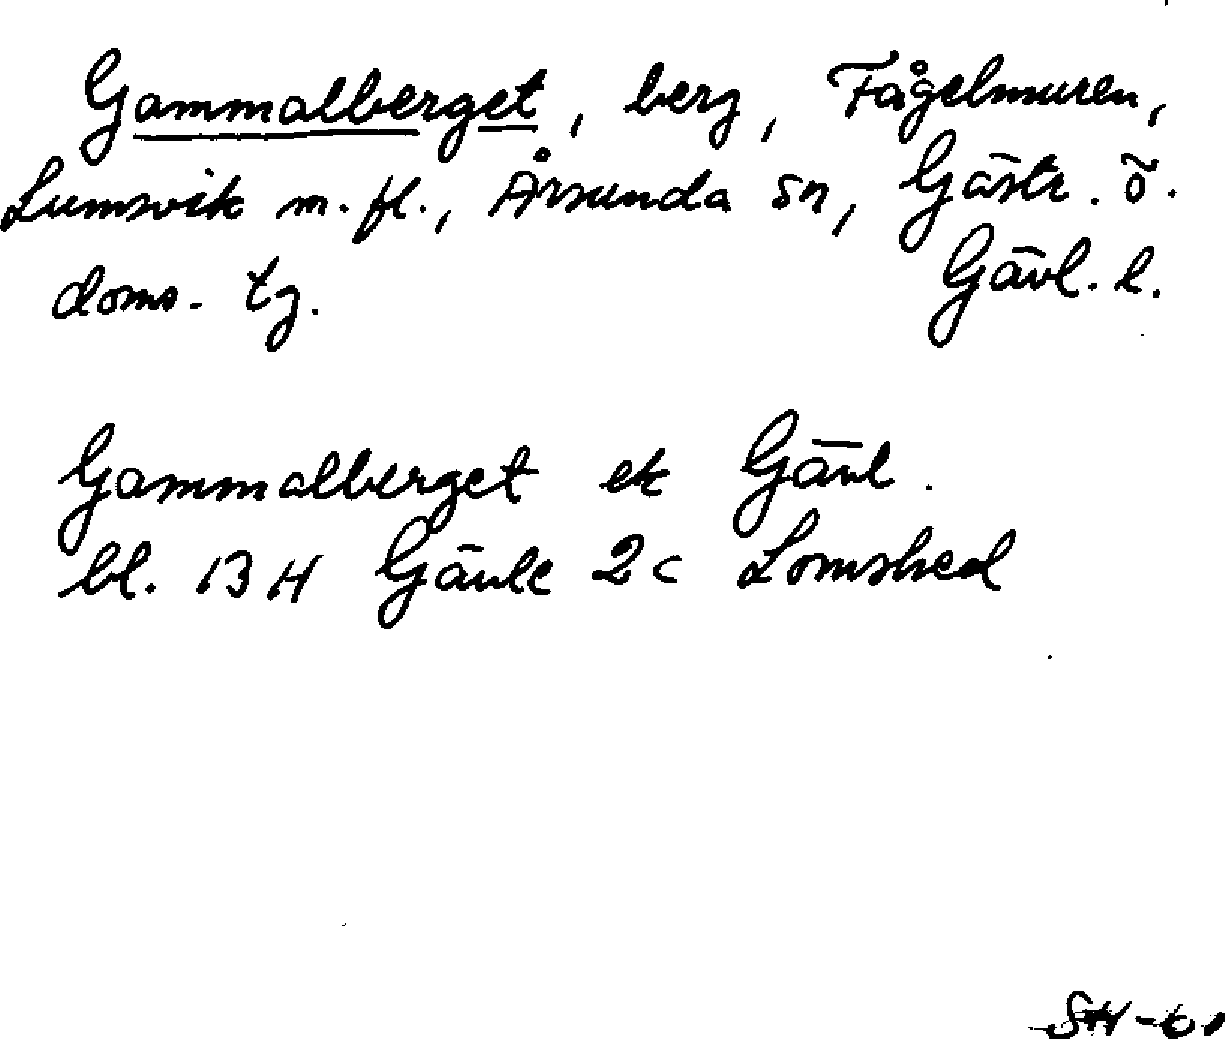 Gammalberget, berg, Fågelmuren,
Lumsvik m. fl., Årsunda sn, Gästr. ö.
doms. tg. Gävl. l.
Gammalberget ek Gävl.
bl. 13 H Gävle 2 c Lomshed